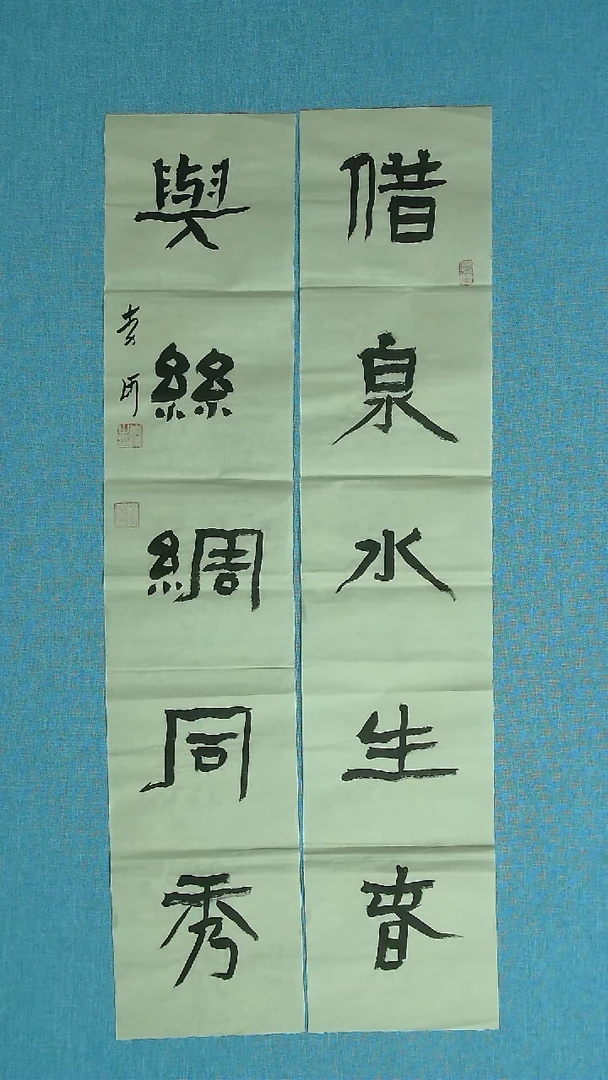 借泉水生音
與絲綢同秀